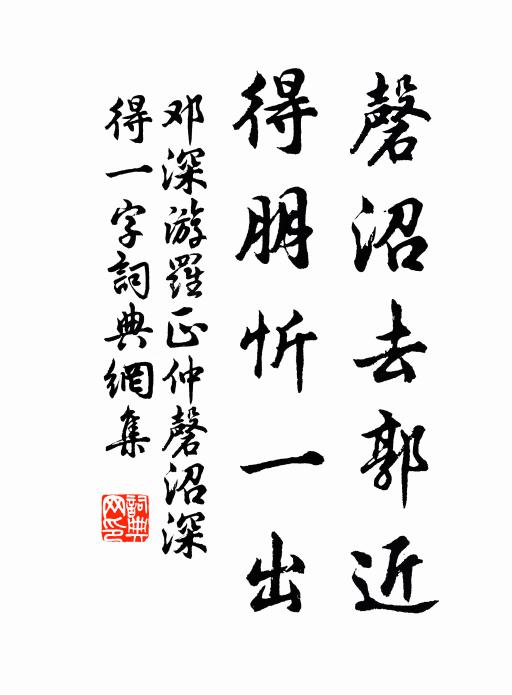 磬沼去郭近
得朋忻一出
邓深游羅正仲磬沼深
得一字詞典網集
詞典网印